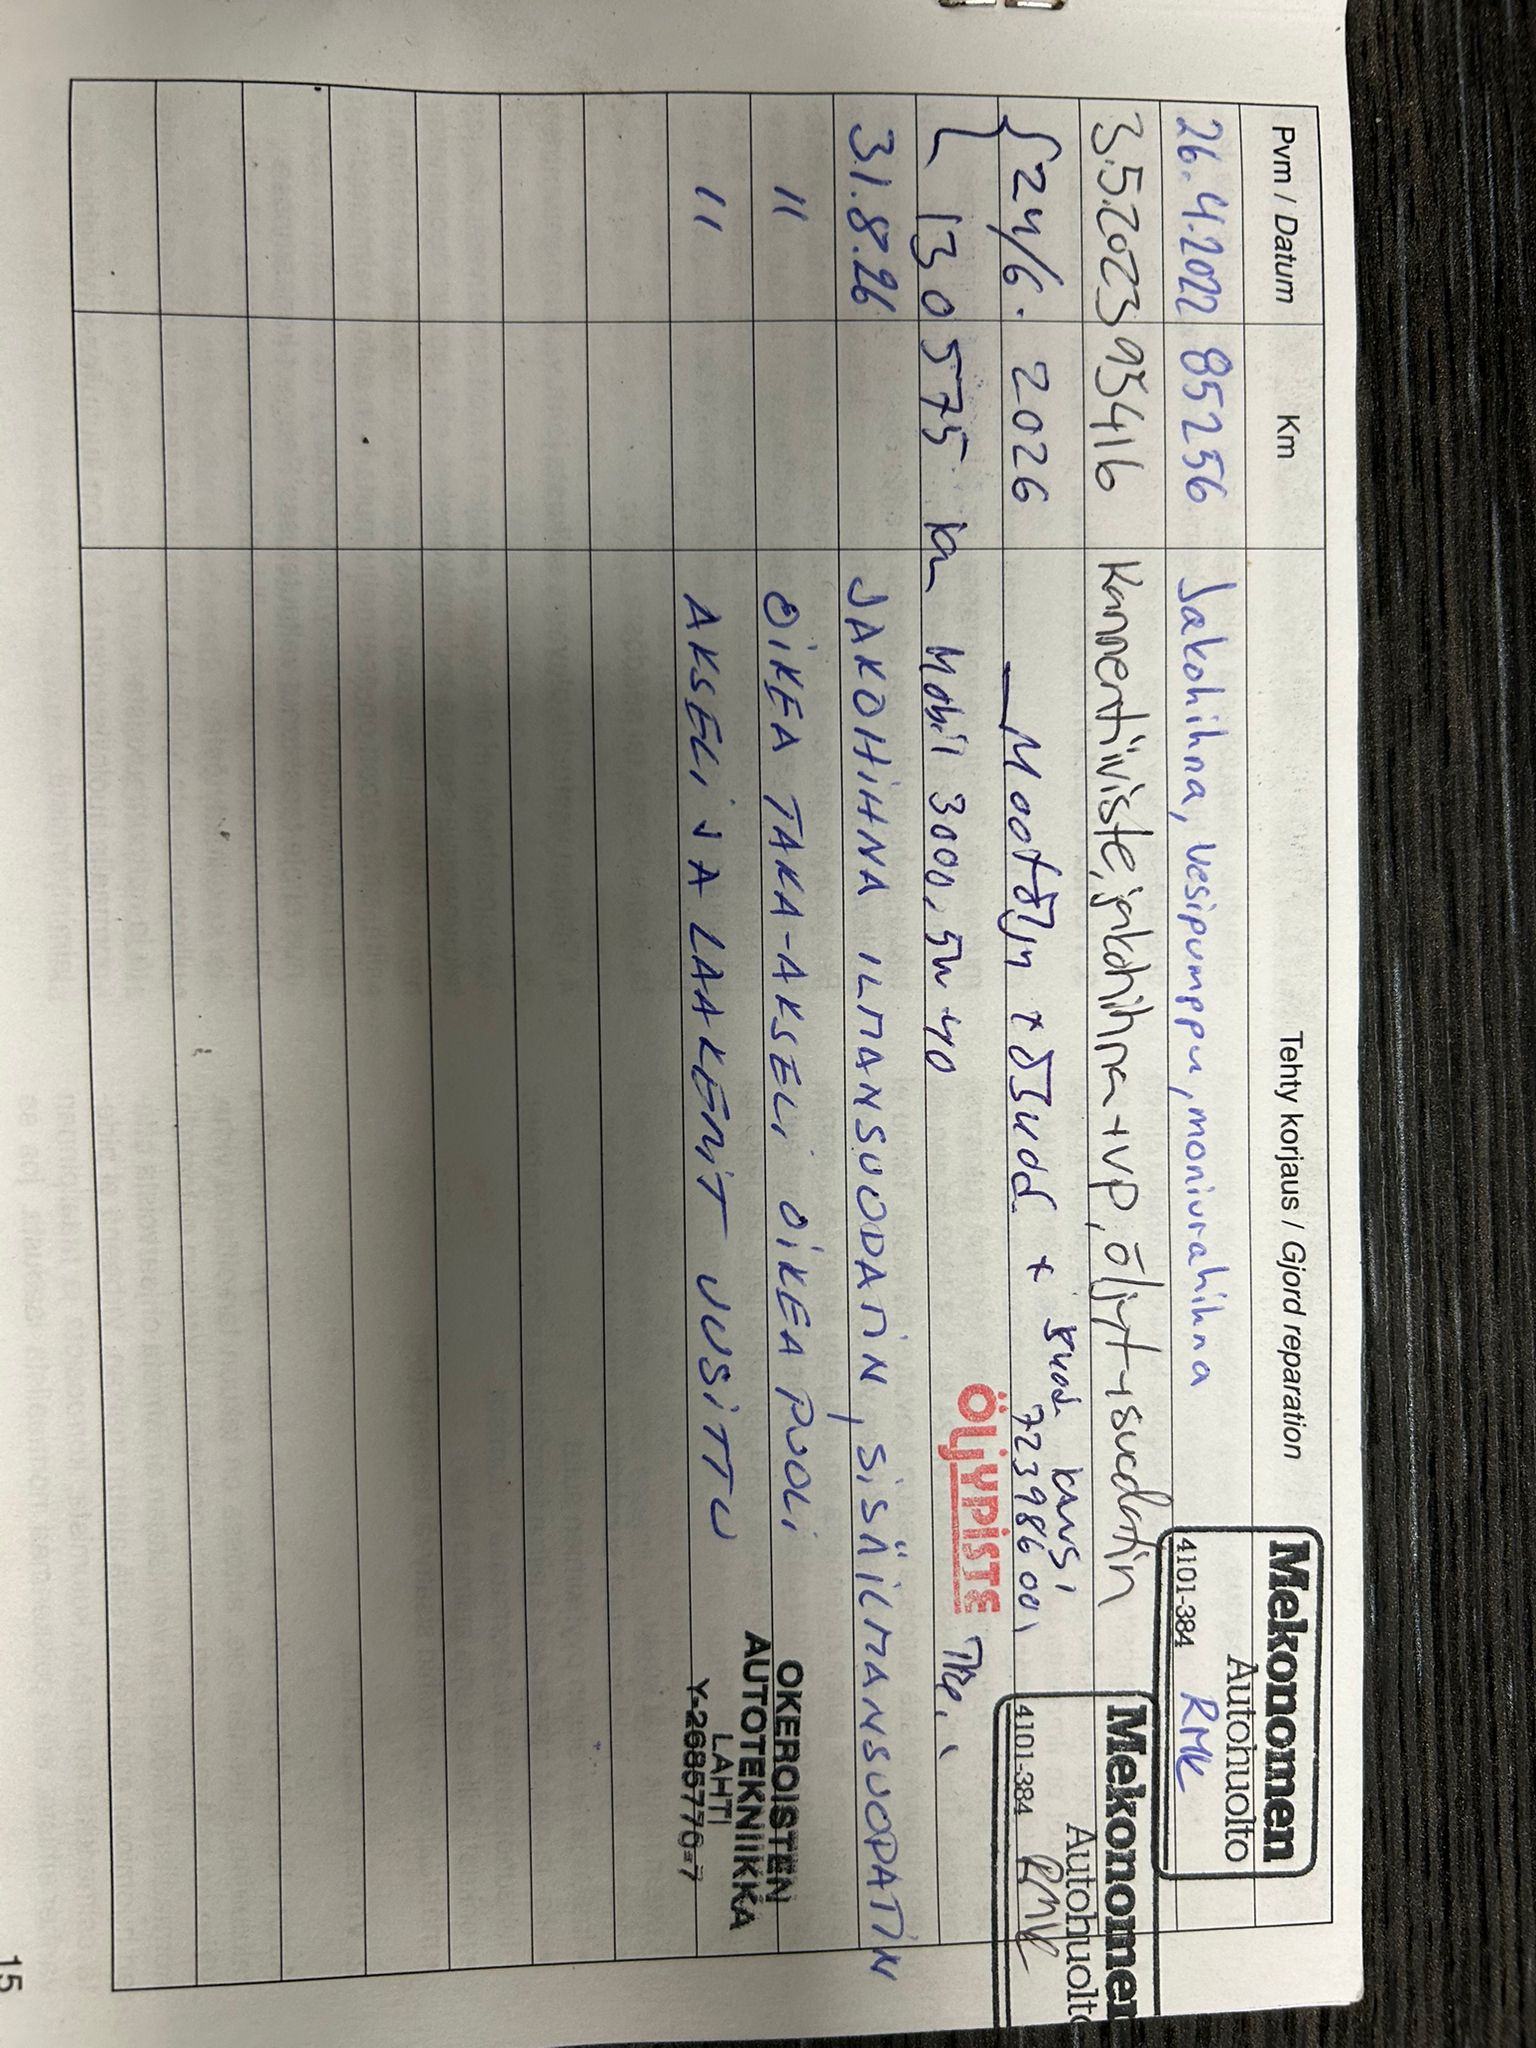 Pvm / Datum Km Tehty korjaus / Gjord reparation
Mekonomen
Autohuolto
4101-384 RMK
26.4.2022 85256 Jakohihna, vesipumppu, moniurahihna
3.5.2023 95416 Kannentiiviste, jakohihna+vp, öljyt+suodatin
Mekonomen
Autohuolto
4101-384 RMK
24/6. 2026 Mootöljy + ölsuod + suod. kansi
723986001
130575 km Mobil 3000, 5w-40
ÖLJYPISTE
31.8.26 JAKOHIHNA ILMANSUODATIN, SISÄILMANSUODATIN
" OIKEA TAKA-AKSELI OIKEA PUOLI
" AKSELI JA LAAKERIT UUSITTU
OKEROISTEN
AUTOTEKNIIKKA
LAHTI
Y-2685770-7
15